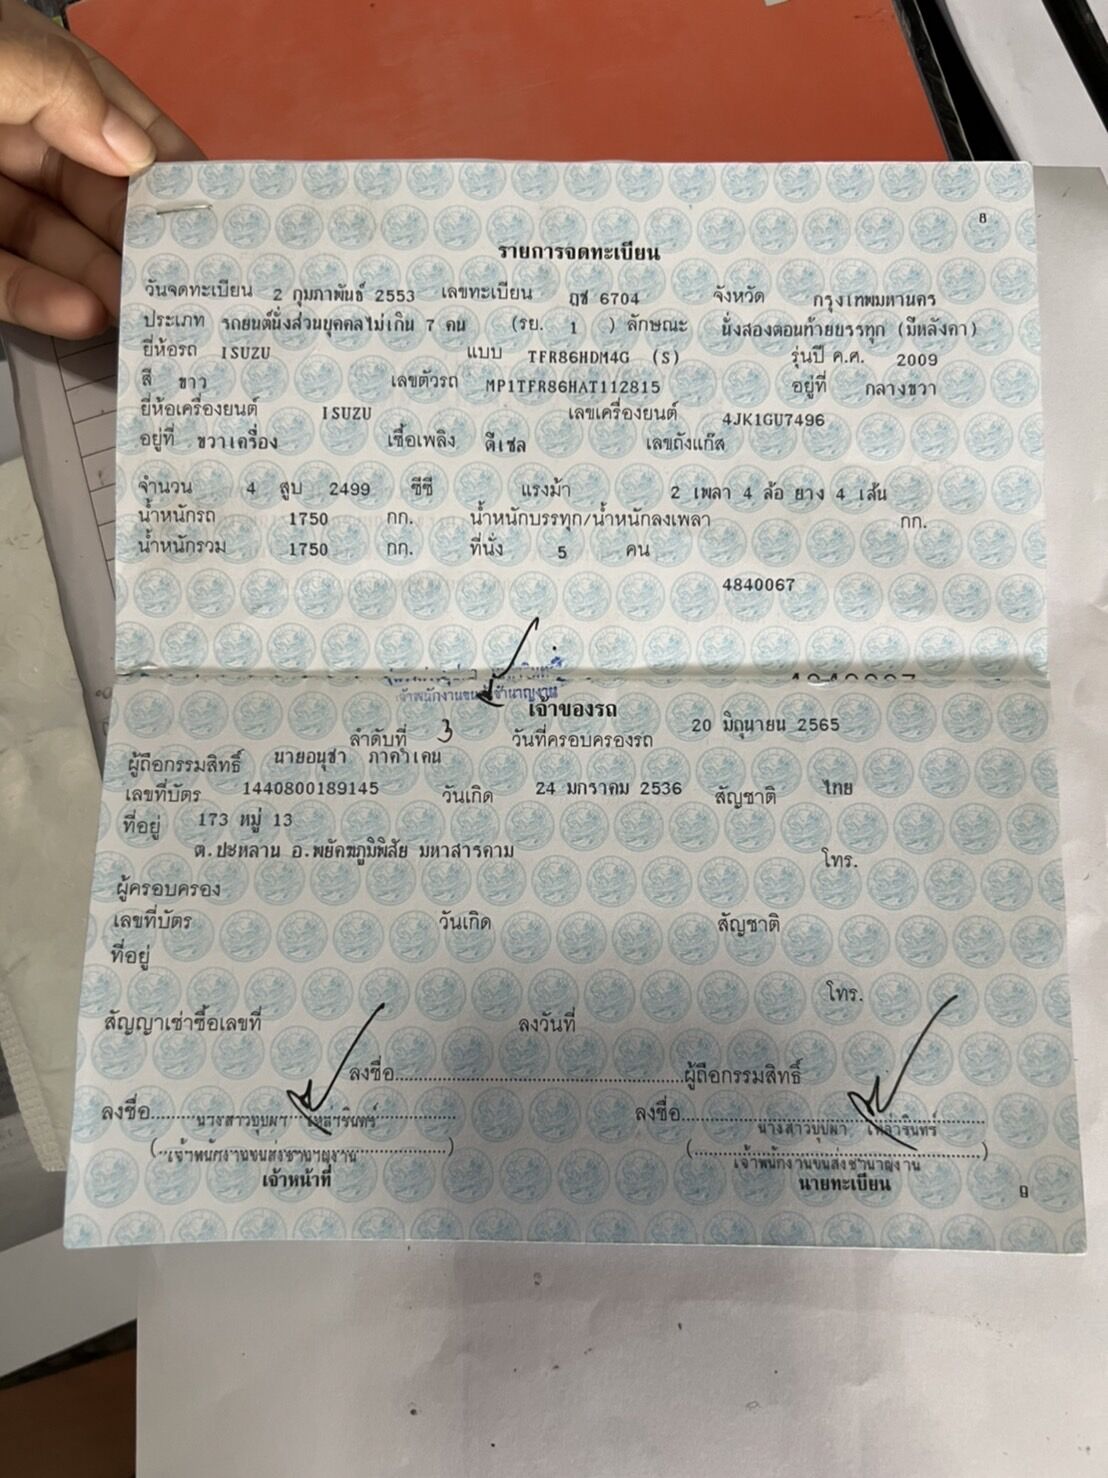 8
รายการจดทะเบียน
วันจดทะเบียน 2 กุมภาพันธ์ 2553 เลขทะเบียน ฎช 6704 จังหวัด กรุงเทพมหานคร
ประเภท รถยนต์นั่งส่วนบุคคลไม่เกิน 7 คน (รย. 1 ) ลักษณะ นั่งสองตอนท้ายบรรทุก (มีหลังคา)
ยี่ห้อรถ ISUZU แบบ TFR86HDM4G (S) รุ่นปี ค.ศ. 2009
สี ขาว เลขตัวรถ MP1TFR86HAT112815 อยู่ที่ กลางขวา
ยี่ห้อเครื่องยนต์ ISUZU เลขเครื่องยนต์ 4JK1GU7496
อยู่ที่ ขวาเครื่อง เชื้อเพลิง ดีเซล เลขถังแก๊ส
จำนวน 4 สูบ 2499 ซีซี แรงม้า 2 เพลา 4 ล้อ ยาง 4 เส้น
น้ำหนักรถ 1750 กก. น้ำหนักบรรทุก/น้ำหนักลงเพลา กก.
น้ำหนักรวม 1750 กก. ที่นั่ง 5 คน
4840067
เจ้าพนักงานขนส่งชำนาญงาน
เจ้าของรถ
ลำดับที่ 3 วันที่ครอบครองรถ 20 มิถุนายน 2565
ผู้ถือกรรมสิทธิ์ นายอนุชา ภาคำเคน
เลขที่บัตร 1440800189145 วันเกิด 24 มกราคม 2536 สัญชาติ ไทย
ที่อยู่ 173 หมู่ 13
ต.ปะหลาน อ.พยัคฆภูมิพิสัย มหาสารคาม โทร.
ผู้ครอบครอง
เลขที่บัตร วันเกิด สัญชาติ
ที่อยู่
โทร.
สัญญาเช่าซื้อเลขที่ ลงวันที่
ลงชื่อ ผู้ถือกรรมสิทธิ์
ลงชื่อ นางสาวบุบผา เหล่ารินทร์ ลงชื่อ นางสาวบุบผา เหล่ารินทร์
(เจ้าพนักงานขนส่งชำนาญงาน) (เจ้าพนักงานขนส่งชำนาญงาน)
เจ้าหน้าที่ นายทะเบียน